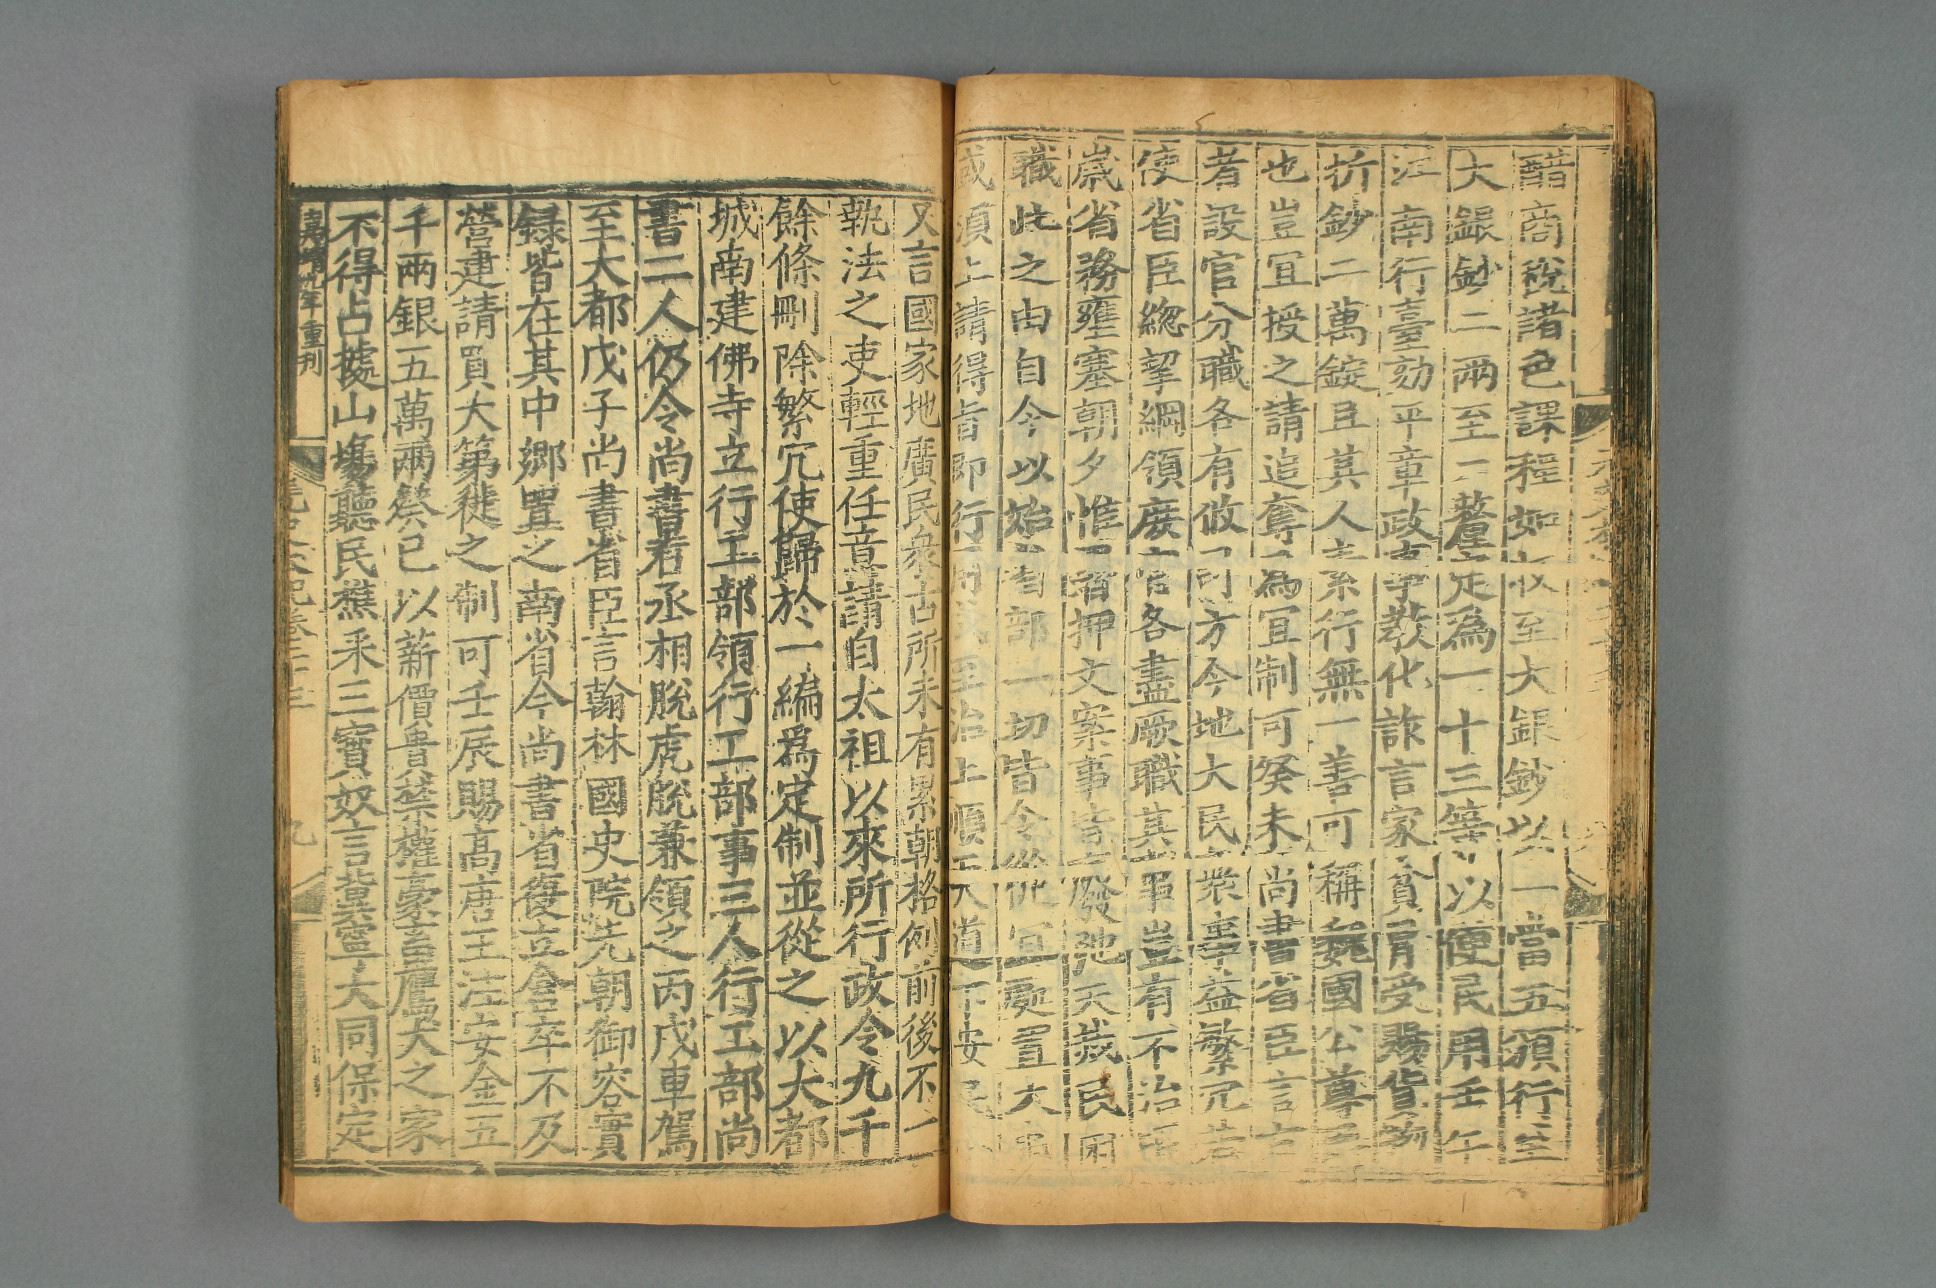 醋商稅諸色課程如收至大銀鈔以一當五頒行至
大銀鈔二兩至一釐定為一十三等以便民用壬午
江南行臺劾平章政事教化詐言家貧冐受賜貨物
折鈔二萬錠且其人素行無一善可稱魏國公尊爵
也豈冝授之請追奪為冝制可癸未尚書省臣言古
者設官分職各有攸司方今地大民衆事益繁冗若
使省臣總挈綱領庶官各盡厥職其事豈有不治
歲省務壅塞朝夕惟署押文案事皆廢弛天災民困
職此之由自今以始省部一切皆令從冝處置大事
或須上請得旨即行用成至治上順天道下安民
又言國家地廣民衆古所未有累朝格例前後不一
執法之吏輕重任意請自太祖以來所行政令九千
餘條刪除繁冗使歸於一編爲定制並從之以大都
城南建佛寺立行工部領行工部事三人行工部尚
書二人仍令尚書右丞相脫虎脫兼領之丙戌車駕
至大都戊子尚書省臣言翰林國史院先朝御容實
録皆在其中郷置之南省今尚書省復立倉卒不及
營建請買大第徙之制可壬辰賜高唐王注安金五
千兩銀五萬兩癸巳以薪價貴禁權豪畜鷹犬之家
不得占據山塲聽民樵采三寶奴言冀寧大同保定
嘉靖九年重刊
元史本紀卷二十三
九